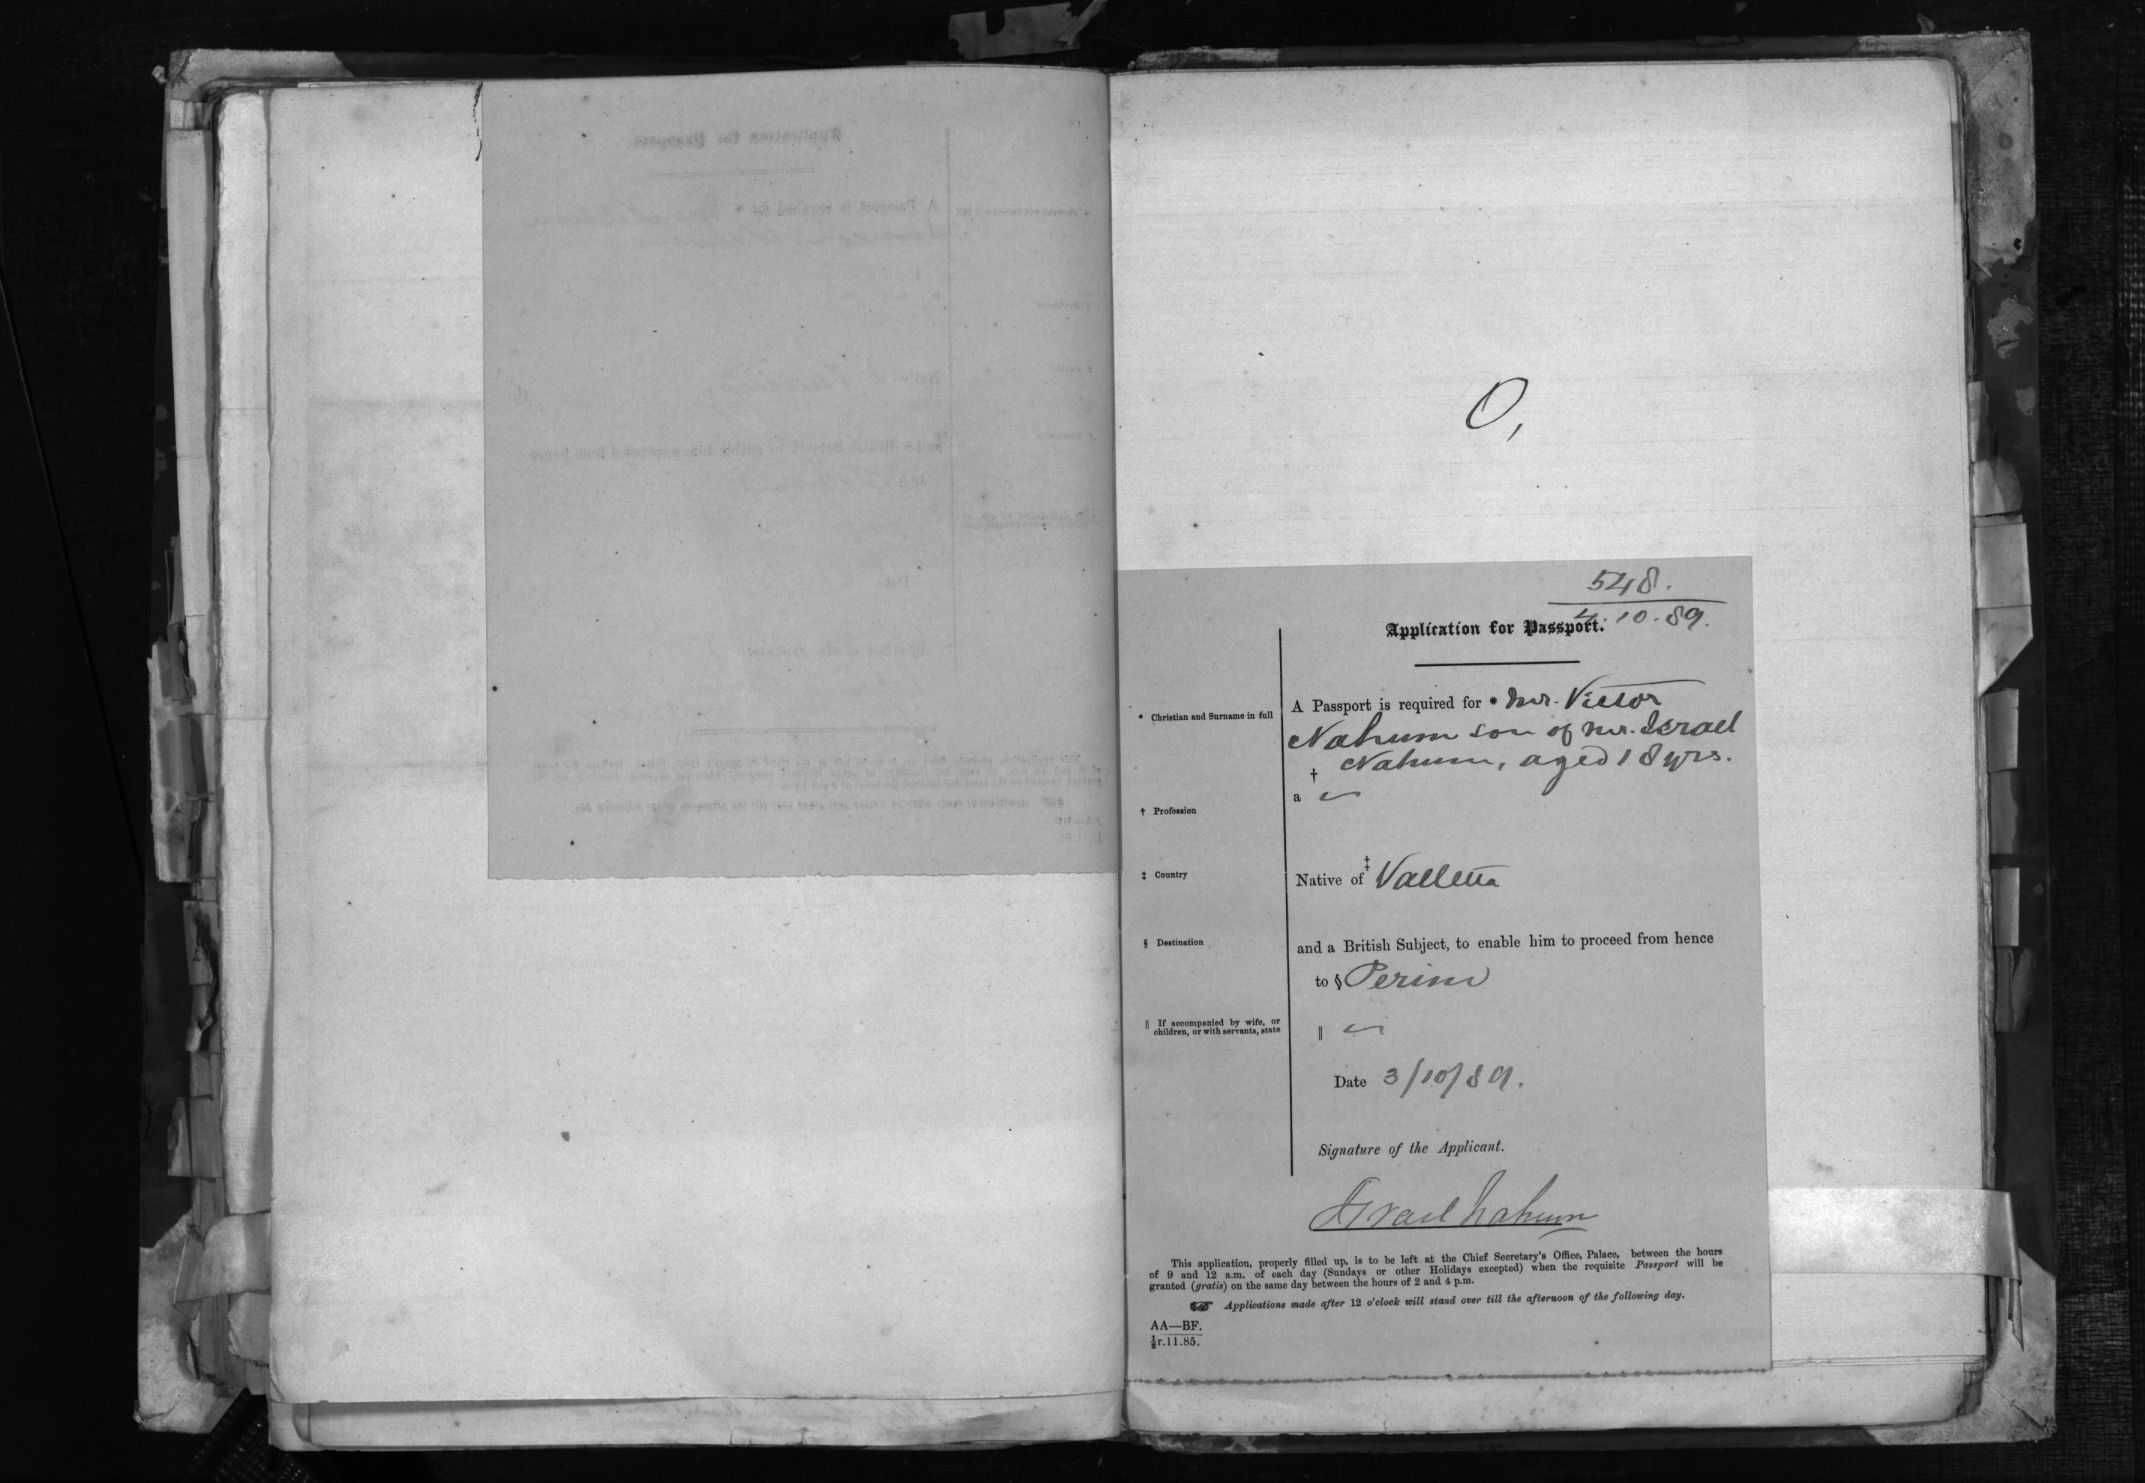 O,
548.
4.10.89.
Application for Passport.
* Christian and Surname in full
A Passport is required for * Mr. Victor
Nahum son of Mr. Israel
Nahum, aged 18 yrs.
† Profession
†
a
‡ Country
Native of ‡ Valletta
§ Destination
and a British Subject, to enable him to proceed from hence
to § Perim
‖ If accompanied by wife, or
children, or with servants, state
‖
Date 3/10/89.
Signature of the Applicant.
Israel Nahum
This application, properly filled up, is to be left at the Chief Secretary's Office, Palace, between the hours
of 9 and 12 a.m. of each day (Sundays or other Holidays excepted) when the requisite Passport will be
granted (gratis) on the same day between the hours of 2 and 4 p.m.
☞ Applications made after 12 o'clock will stand over till the afternoon of the following day.
AA—BF.
½r.11.85.